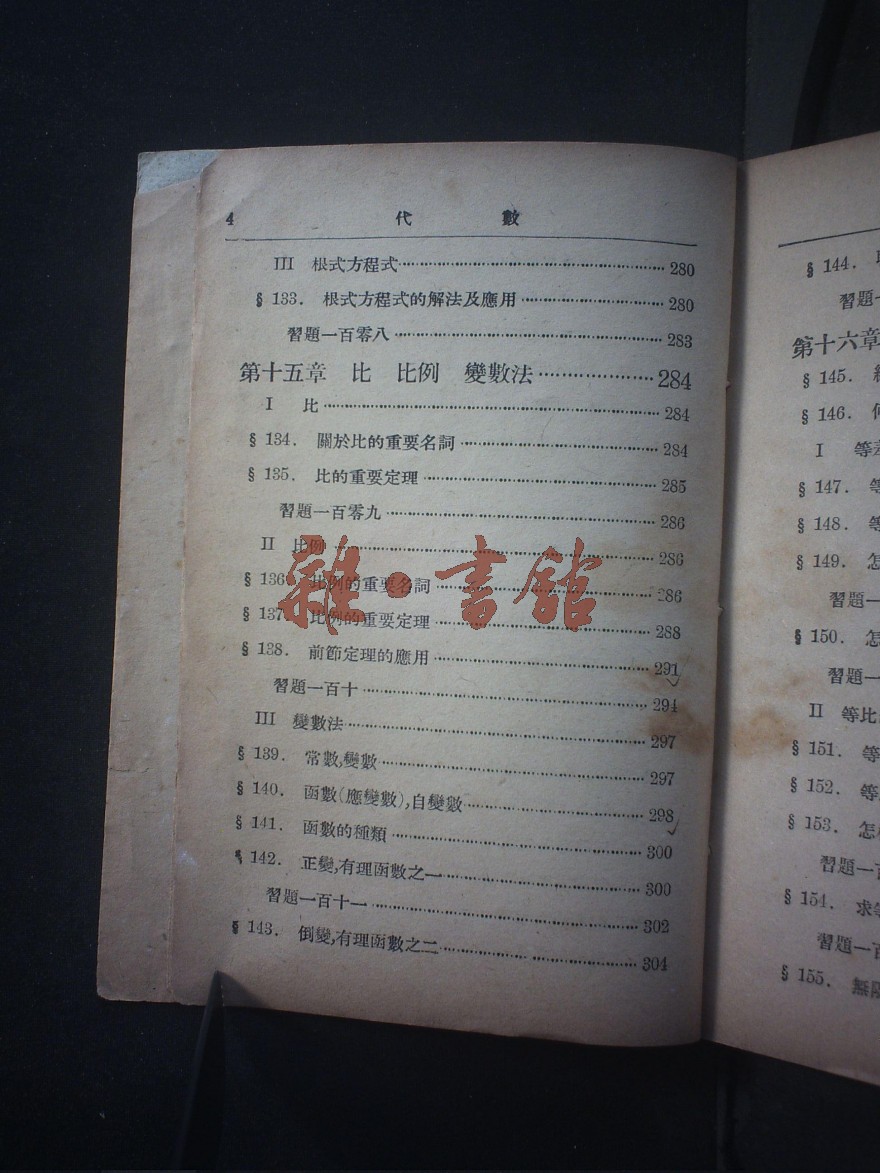 4 代 數
III 根式方程式 280
§ 133. 根式方程式的解法及應用 280
習題一百零八 283
第十五章 比 比例 變數法 284
I 比 284
§ 134. 關於比的重要名詞 284
§ 135. 比的重要定理 285
習題一百零九 286
II 比例 286
§ 136. 比例的重要名詞 286
§ 137. 比例的重要定理 288
§ 138. 前節定理的應用 291
習題一百十 294
III 變數法 297
§ 139. 常數,變數 297
§ 140. 函數(應變數),自變數 298
§ 141. 函數的種類 300
§ 142. 正變,有理函數之一 300
習題一百十一 302
§ 143. 倒變,有理函數之二 304
雜·書館
§ 144.
習題一
第十六章
§ 145.
§ 146.
I 等差
§ 147. 等
§ 148. 等
§ 149. 怎
習題一
§ 150. 怎
習題一
II 等比
§ 151. 等
§ 152. 等
§ 153. 怎
習題一百
§ 154. 求等
習題一百
§ 155. 無限